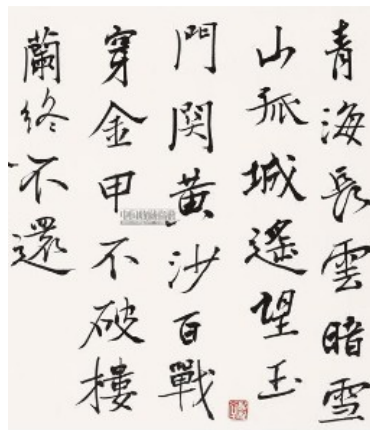 青海長雲暗雪
山孤城遙望玉
門関黄沙百戰
穿金甲不破樓
蘭終不還